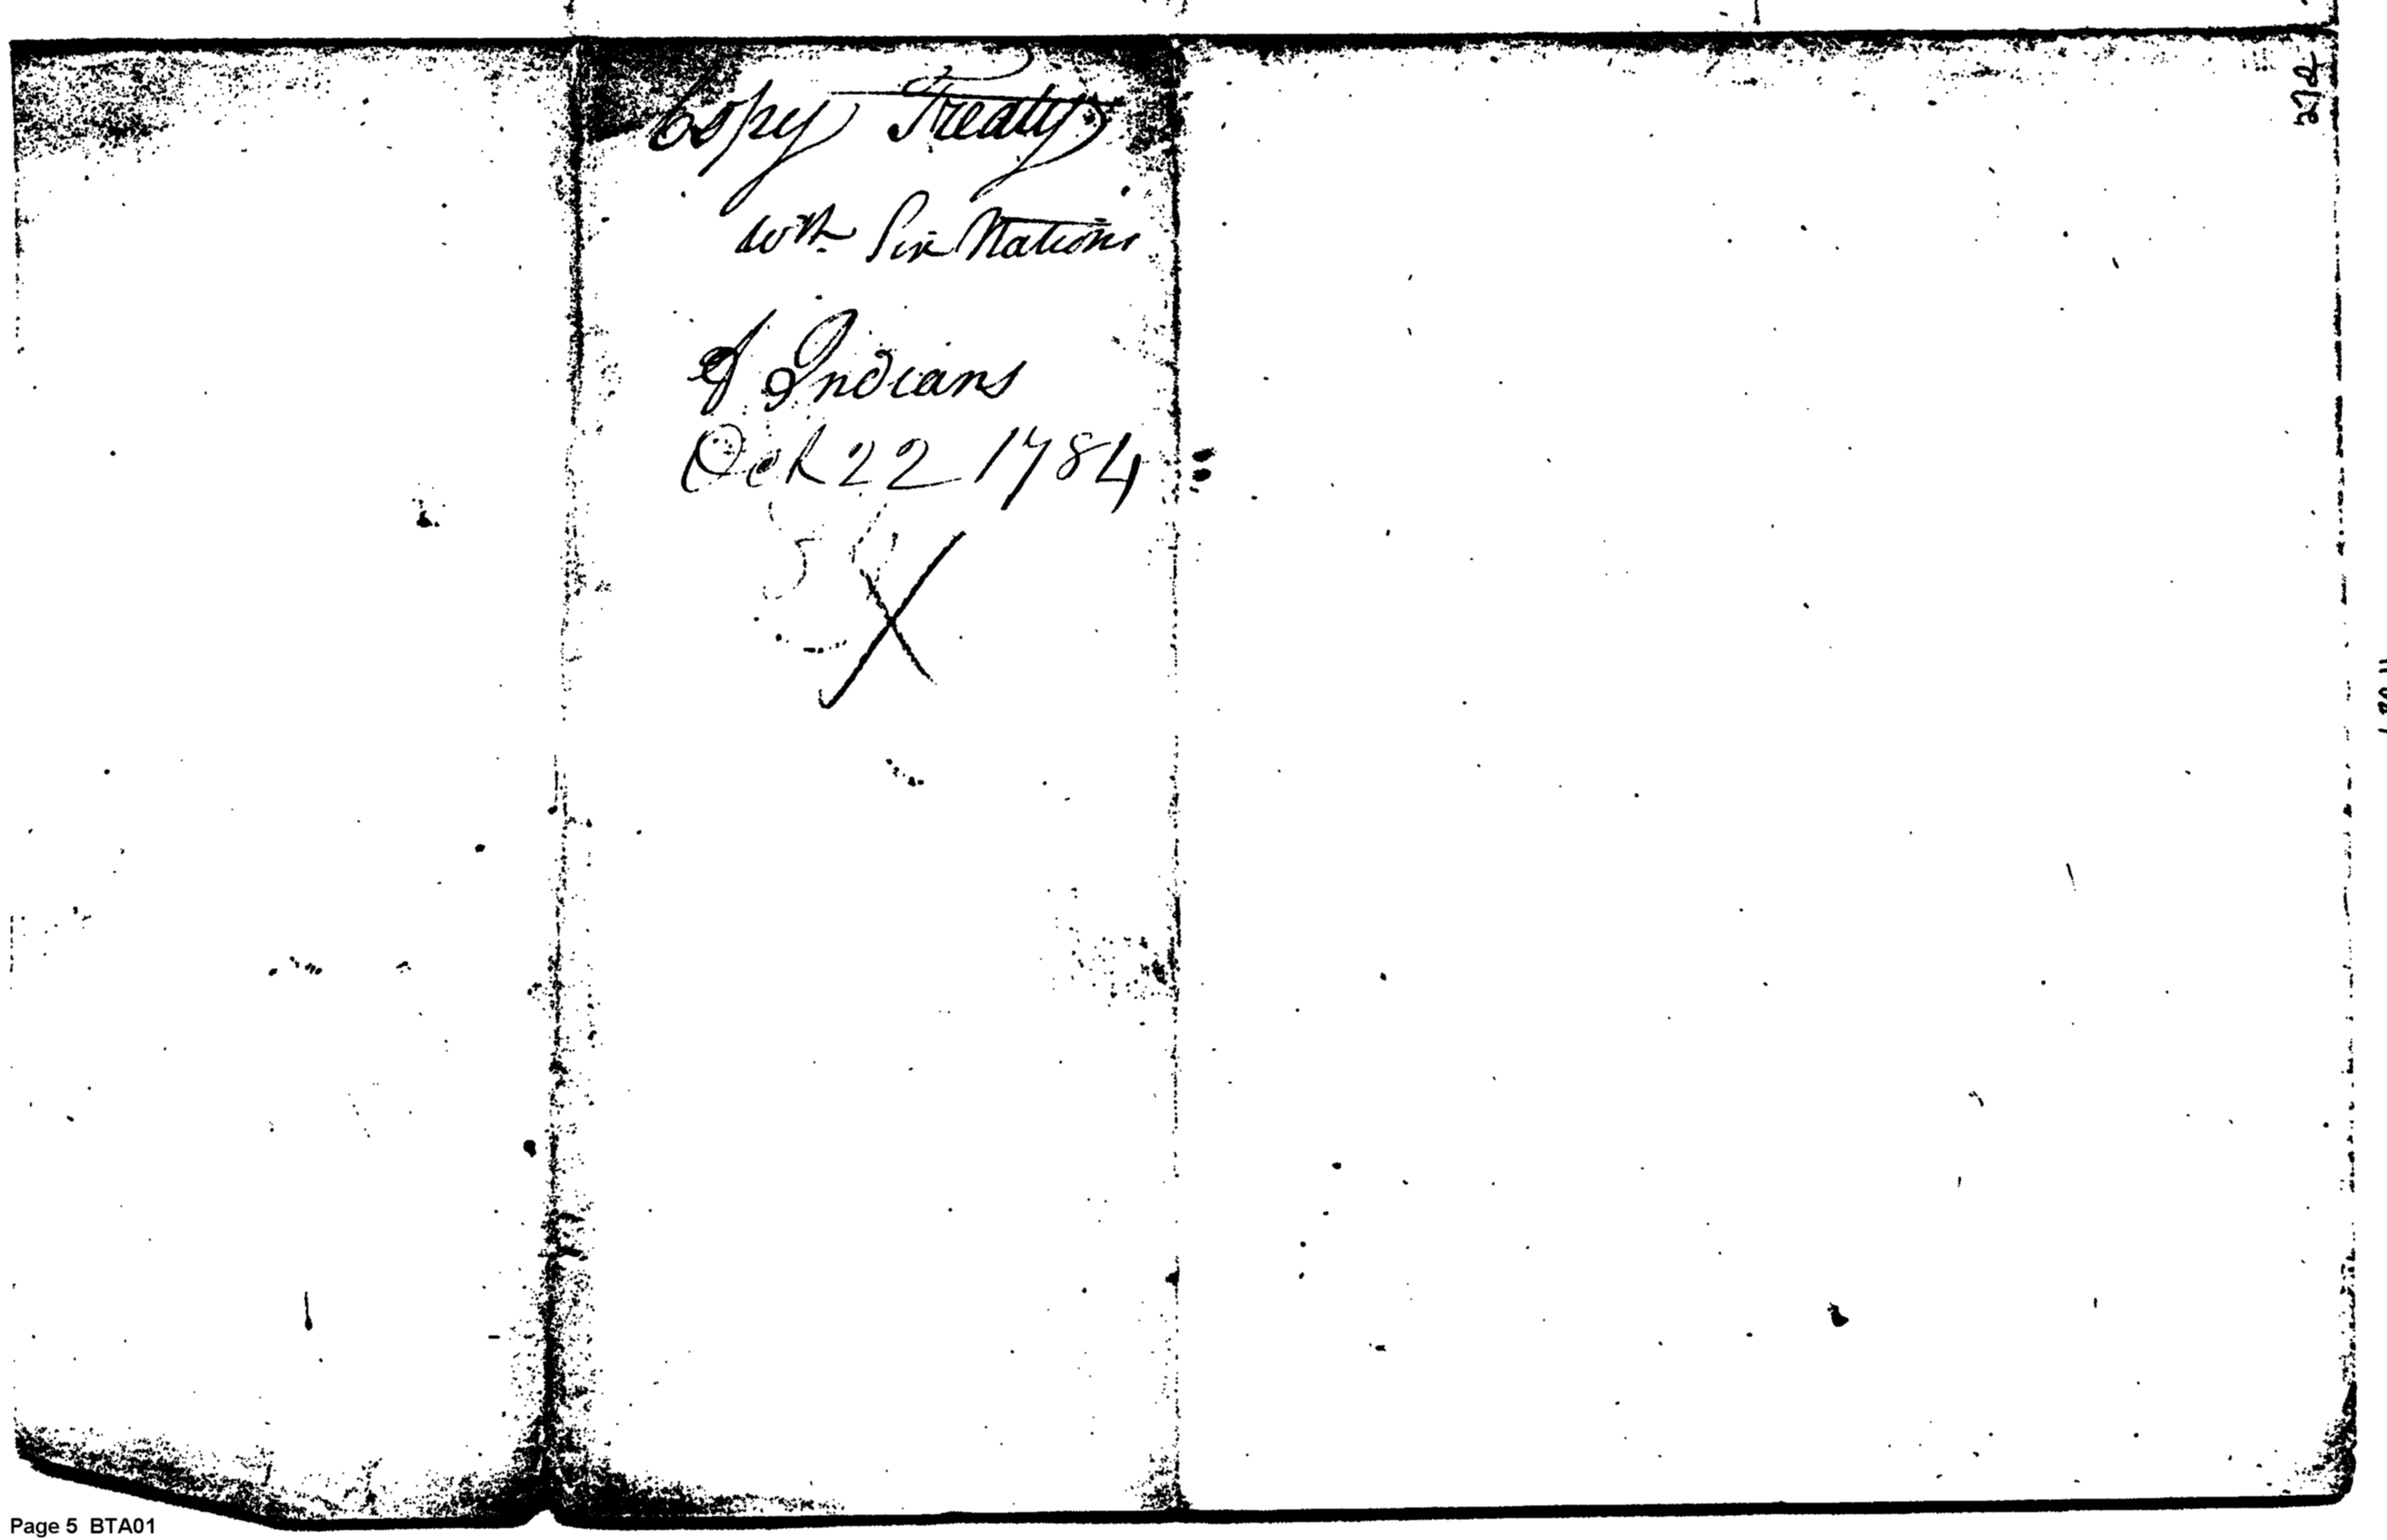 Copy Treaty
wth Six Nations
of Indians
Oct 22 1784
X
272
Page 5 BTA01